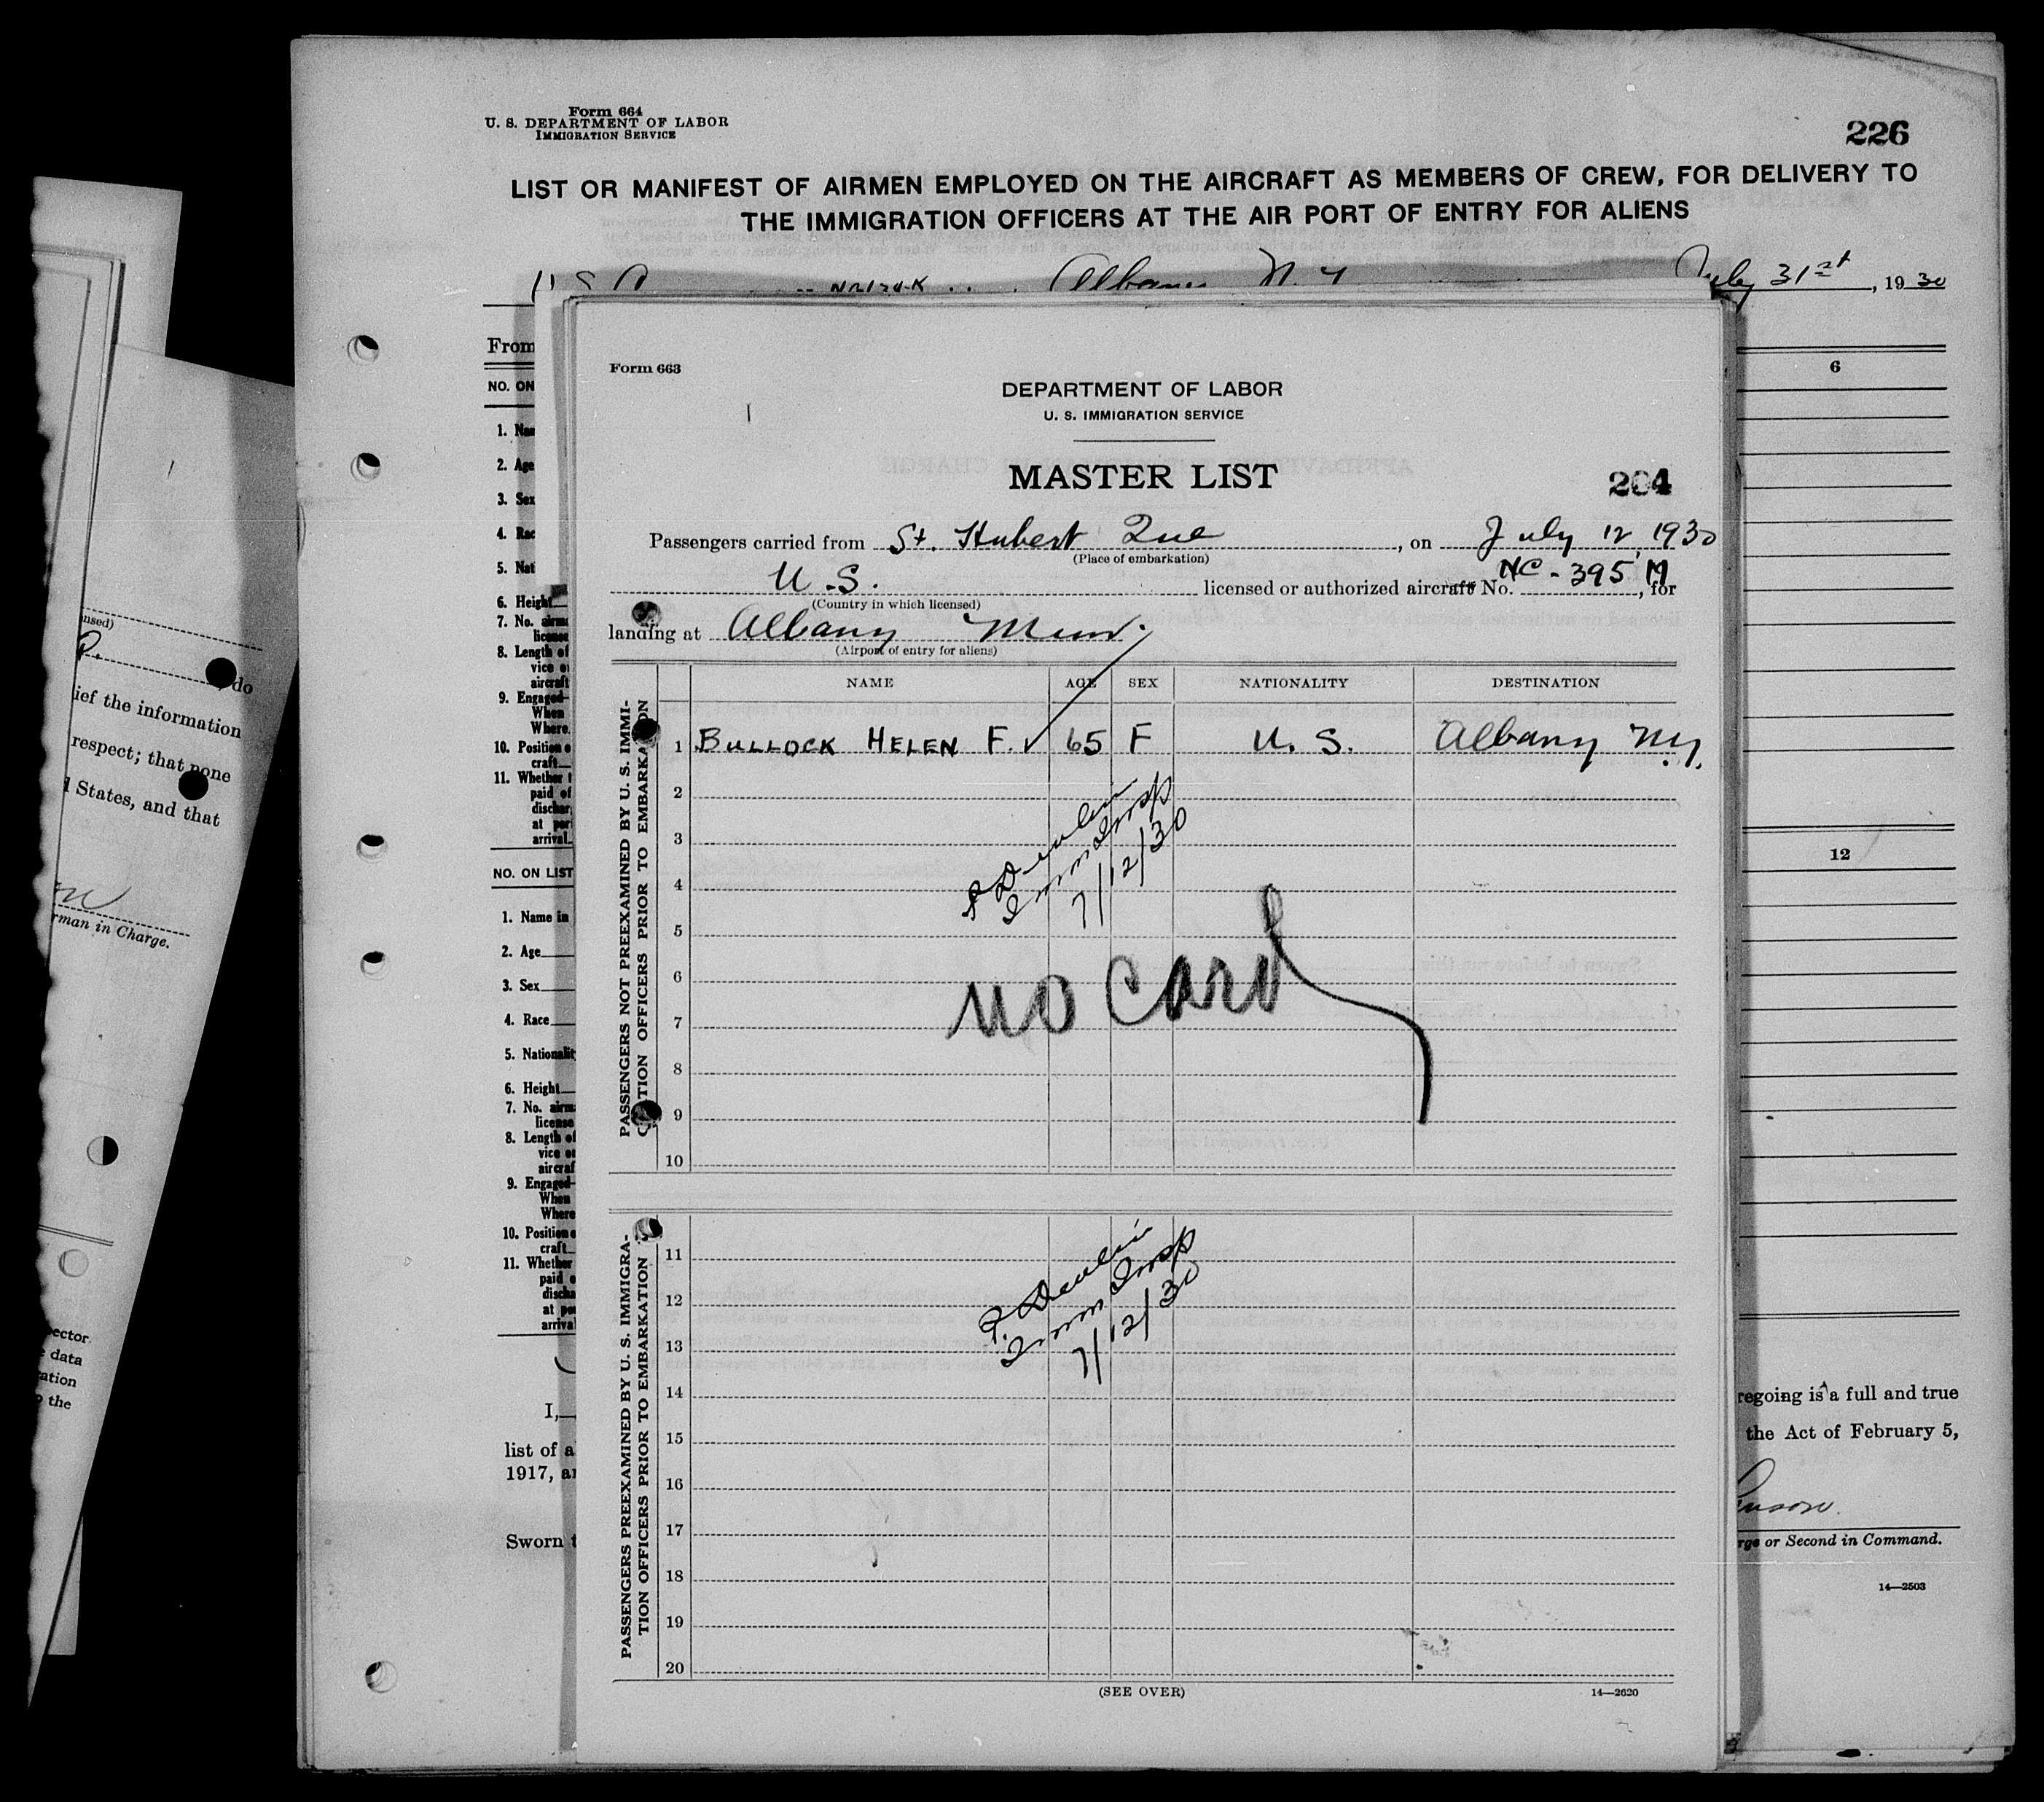 Form 664
U. S. DEPARTMENT OF LABOR
IMMIGRATION SERVICE
226
LIST OR MANIFEST OF AIRMEN EMPLOYED ON THE AIRCRAFT AS MEMBERS OF CREW, FOR DELIVERY TO
THE IMMIGRATION OFFICERS AT THE AIR PORT OF ENTRY FOR ALIENS
Albany N. Y July 31st, 1930
From
NO. ON
6
1. Nam
2. Age
3. Sex
4. Rac
5. Nati
6. Height
7. No. airm
license
8. Length of
vice o
aircraft
9. Engaged
When
Where
10. Position o
craft
11. Whether
paid of
dischar
at por
arrival
NO. ON LIST
12
1. Name in
2. Age
3. Sex
4. Race
5. Nationalit
6. Height
7. No. airm
license
8. Length of
vice o
aircraf
9. Engaged
When
Where
10. Position o
craft
11. Whether
paid o
discha
at po
arrival
I,
regoing is a full and true
list of a
the Act of February 5,
1917, a
Sworn t
rge or Second in Command.
14—2503
Form 663
DEPARTMENT OF LABOR
U. S. IMMIGRATION SERVICE
MASTER LIST
204
Passengers carried from St. Hubert Que, on July 12, 1930
(Place of embarkation)
U.S. licensed or authorized aircraft No. NC-395 M, for
(Country in which licensed)
landing at Albany Mun.
(Airport of entry for aliens)
NAME AGE SEX NATIONALITY DESTINATION
PASSENGERS NOT PREEXAMINED BY U. S. IMMI-
GRATION OFFICERS PRIOR TO EMBARKATION
1 BULLOCK HELEN F. 65 F U. S. Albany N.Y.
2
3
4
P Devlin
Imm Insp
7/12/30
5
6
no card
7
8
9
10
PASSENGERS PREEXAMINED BY U. S. IMMIGRA-
TION OFFICERS PRIOR TO EMBARKATION
11
12
13
P. Devlin
Imm Insp
7/12/30
14
15
16
17
18
19
20
(SEE OVER)
14—2620
nsed)
do
ief the information
respect; that none
d States, and that
rman in Charge.
ector
data
ation
the